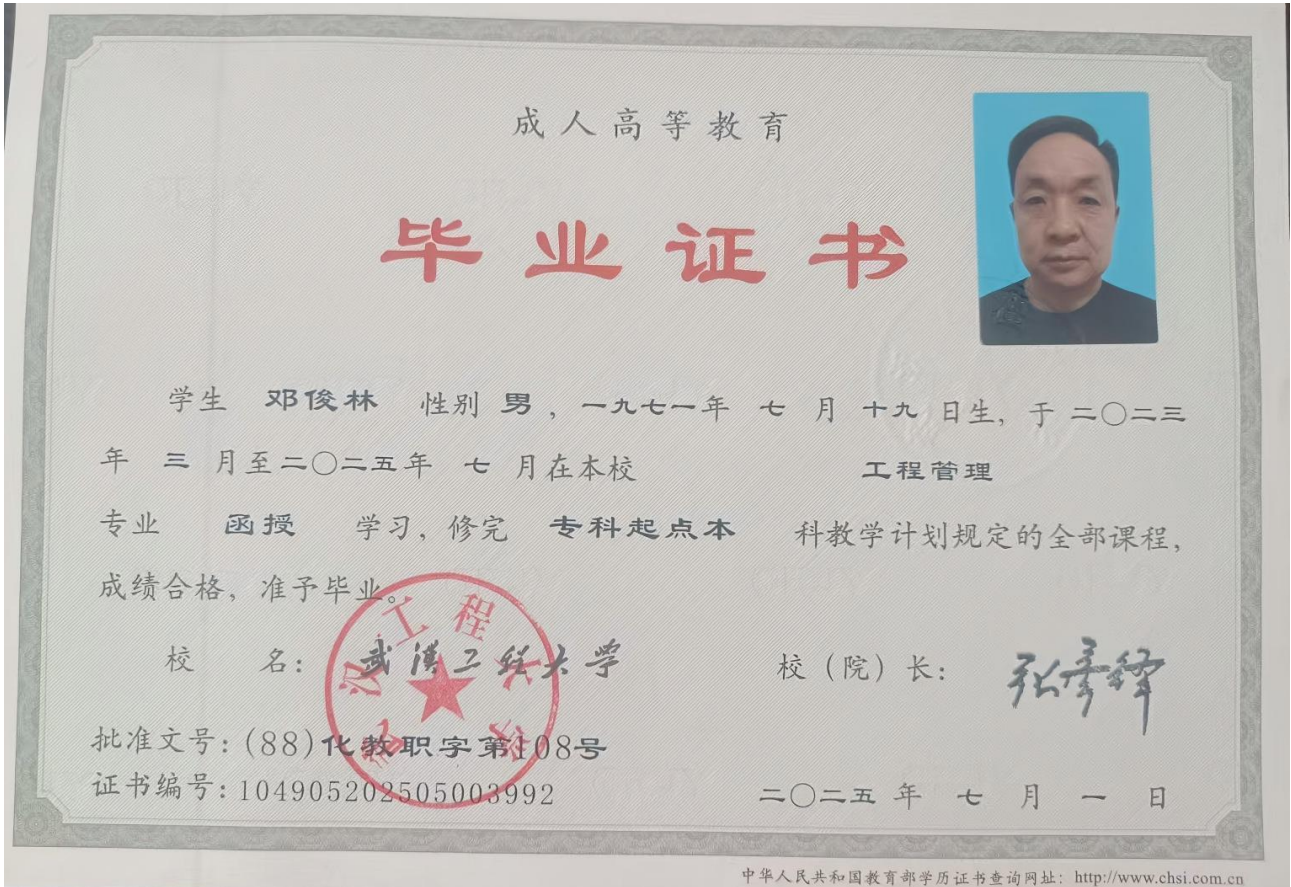 成人高等教育
毕业证书
学生 邓俊林 性别 男 ，一九七一年 七 月 十九 日生，于 二〇二三
年 三 月至二〇二五年 七 月在本校 工程管理
专业 函授 学习，修完 专科起点本 科教学计划规定的全部课程，
成绩合格，准予毕业。
校 名： 武汉工程大学 校（院）长： 张彦铎
武汉工程大学
批准文号：(88)化教职字第108号
证书编号：104905202505003992 二〇二五 年 七 月 一 日
中华人民共和国教育部学历证书查询网址：http://www.chsi.com.cn